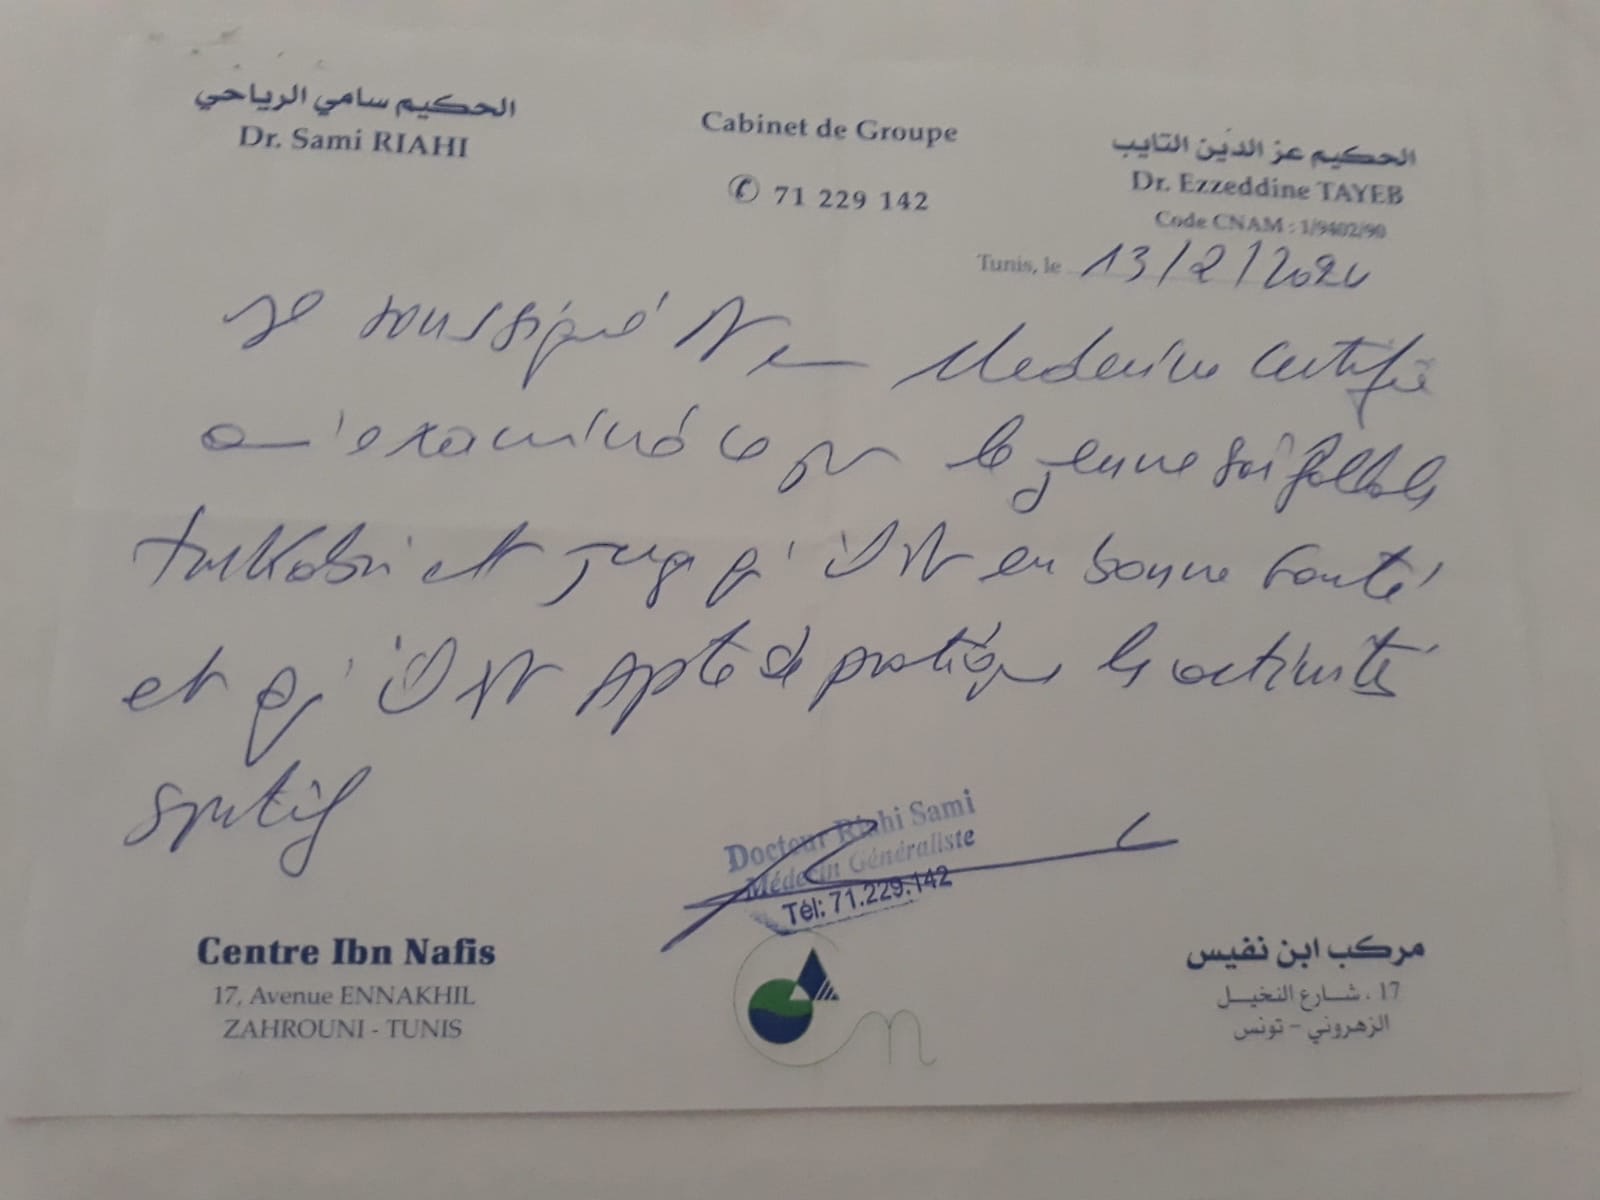 الحكيم سامي الرياحي
Dr. Sami RIAHI
Cabinet de Groupe
✆ 71 229 142
الحكيم عز الدين التايب
Dr. Ezzeddine TAYEB
Code CNAM : 1/9402/90
Tunis, le 13/2/202
Je soussigné Medecin certifie
examiné le jeune
et juge q' il est en bonne santé
et q' il est apte de pratiquer les activités
sportif
Docteur Riahi Sami
Médecin Généraliste
Tél: 71.229.142
Centre Ibn Nafis
17, Avenue ENNAKHIL
ZAHROUNI - TUNIS
مركب ابن نفيس
17 ، شارع النخيل
الزهروني - تونس